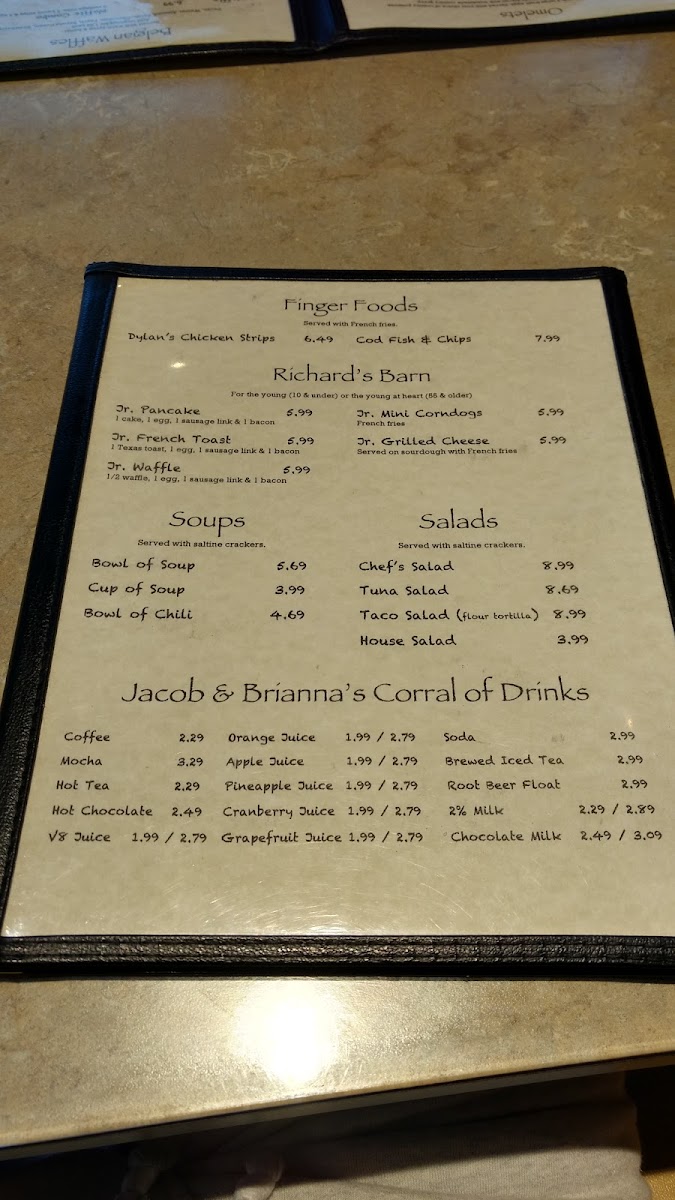 Belgian Waffles
Omelets
Finger Foods
Served with French fries.
Dylan's Chicken Strips 6.49 Cod Fish & Chips 7.99
Richard's Barn
For the young (10 & under) or the young at heart (55 & older)
Jr. Pancake 5.99 Jr. Mini Corndogs 5.99
1 cake, 1 egg, 1 sausage link & 1 bacon French fries
Jr. French Toast 5.99 Jr. Grilled Cheese 5.99
1 Texas toast, 1 egg, 1 sausage link & 1 bacon Served on sourdough with French fries
Jr. Waffle 5.99
1/2 waffle, 1 egg, 1 sausage link & 1 bacon
Soups
Served with saltine crackers.
Bowl of Soup 5.69
Cup of Soup 3.99
Bowl of Chili 4.69
Salads
Served with saltine crackers.
Chef's Salad 8.99
Tuna Salad 8.69
Taco Salad (flour tortilla) 8.99
House Salad 3.99
Jacob & Brianna's Corral of Drinks
Coffee 2.29 Orange Juice 1.99 / 2.79 Soda 2.99
Mocha 3.29 Apple Juice 1.99 / 2.79 Brewed Iced Tea 2.99
Hot Tea 2.29 Pineapple Juice 1.99 / 2.79 Root Beer Float 2.99
Hot Chocolate 2.49 Cranberry Juice 1.99 / 2.79 2% Milk 2.29 / 2.89
V8 Juice 1.99 / 2.79 Grapefruit Juice 1.99 / 2.79 Chocolate Milk 2.49 / 3.09